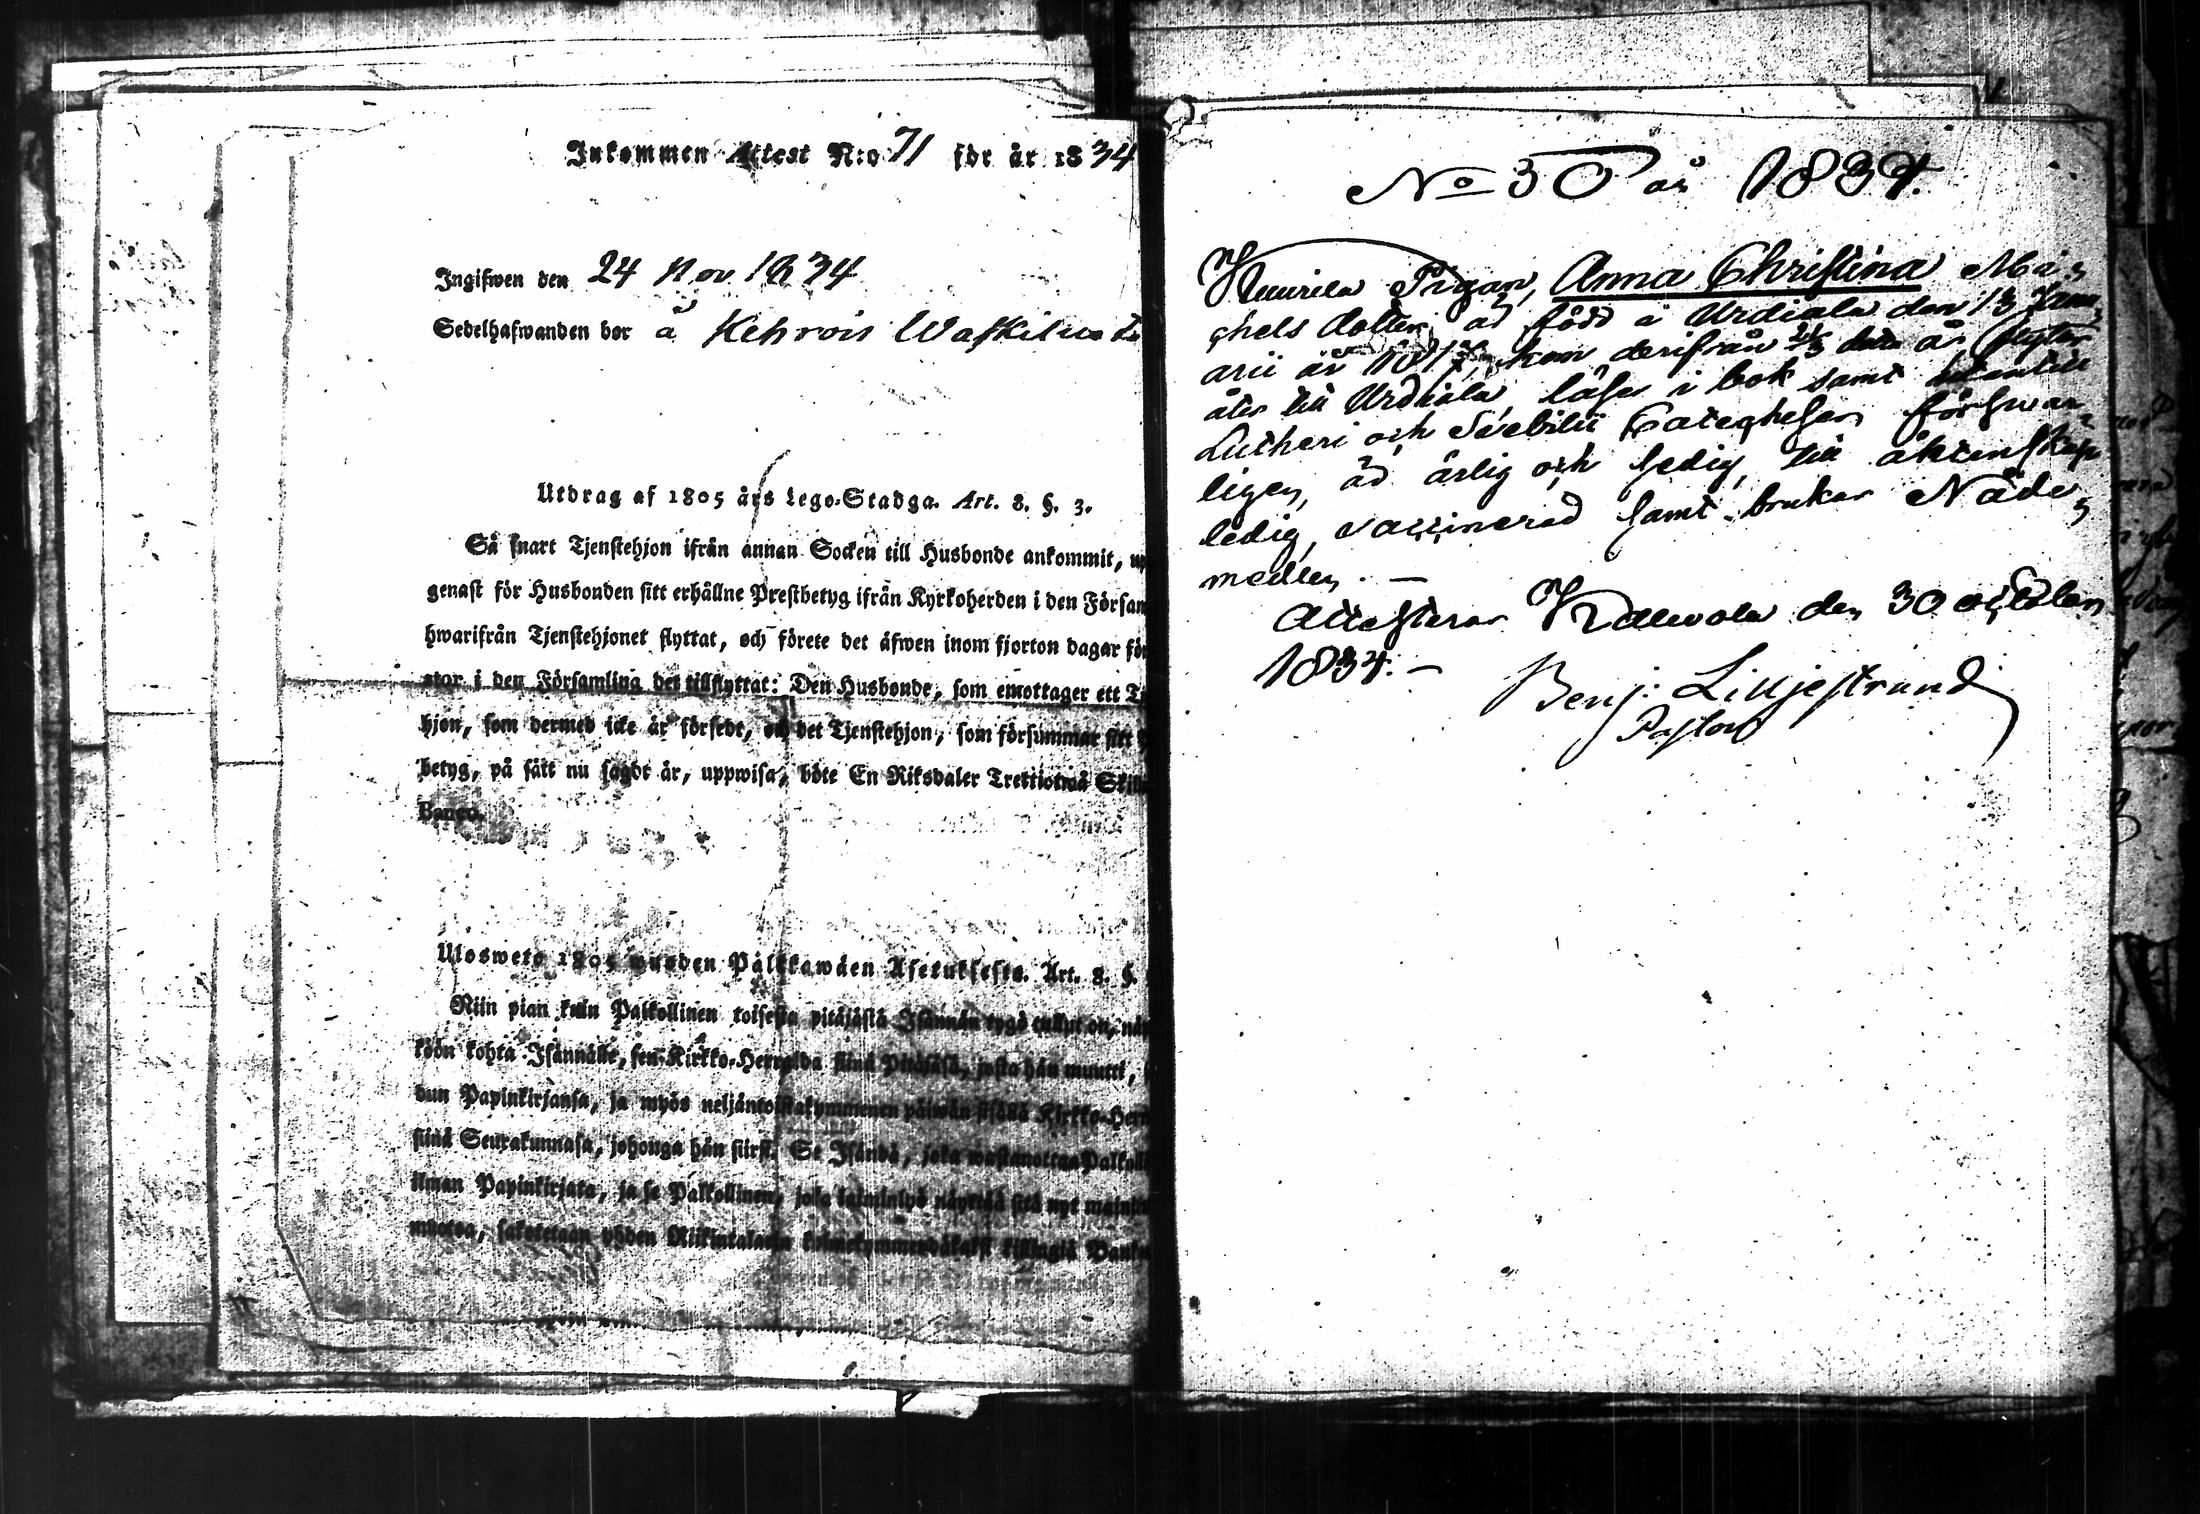 Inkommen Attest N:o 71 för år 1834
Ingifwen den 24 Nov 1834
Sedelhafwanden bor å Kehrois
Utdrag af 1805 års Lego-Stadga. Art. 8. §. 3.
Så snart Tjenstehjon ifrån annan Socken till Husbonde ankommit,
genast för Husbonden sitt erhållne Prestbetyg ifrån Kyrkoherden i den Försam
hwarifrån Tjenstehjonet flyttat, och förete det äfwen inom fjorton dagar för
stor i den Församling det tillflyttat: Den Husbonde, som emottager ett T
hjon, som dermed icke är försedt, och det Tjenstehjon, som försummar sitt
betyg, på sätt nu sagdt är, uppwisa, böte En Riksdaler Trettiotwå Skill
Banco.
Ulosweto 1805 wuoden Palkkawäen Asetuksesta. Art. 8. §.
Niin pian kuin Palkollinen toisesta pitäjästä Isännän tygö tullut on,
köön kohta Isännälle, sen Kirkko-Herralda siinä Pitäjäsä, josta hän muutti,
dun Papinkirjansa, ja myös neljäntoistakymmenen päiwän sisällä Kirkko-Herr
siinä Seurakunnasa, johonga hän siirsi. Se Isändä, joka wastanottaa Palkolli
ilman Papinkirjata, ja se Palkollinen, joka laiminlyö näyttää sitä nyt mainit
muotoa, sakotetaan yhden Riikintalarin kolmekymmendäkaksi killingiä Banko
No 30 år 1834.
Pigan, Anna Christina Mi,
chels dotter, är född i Urdiala den 13 Janu,
arii år kom derifrån år flyttar
åter till Urdiala, läser i bok samt utantill
Lutheri och Svebilii Catechesen försvar,
ligen, är ärlig och ledig till äktenskap
ledig, vaccinerad samt brukar Nåde,
medlen. —
Attesteras den 30 october
1834. —
Benj: Lilljestrand
Pastor